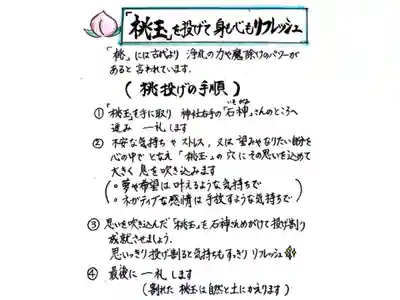 「桃玉」を投げて身も心もリフレッシュ
「桃」には古代より 浄化の力や魔除けのパワーが
あると言われています.
( 桃投げの手順 )
①「桃玉」を手に取り 神社右手の「石神」さんのところへ
いしがみ
進み 一礼します
② 不安な気持ち や ストレス, 又は 望みやなりたい自分を
心の中で となえ 「桃玉」の 穴に その思いを込めて
大きく 息を吹き込みます
(・夢や希望は叶えるような気持ちで
・ネガティブな感情は手放すような気持ちで)
③ 思いを吹き込んだ「桃玉」を石神にめがけて投げ割り
成就させましょう.
思いっきり投げ割ると気持ちもすっきり リフレッシュ
④ 最後に 一礼 します
(割れた 桃玉は自然と土にかえります)